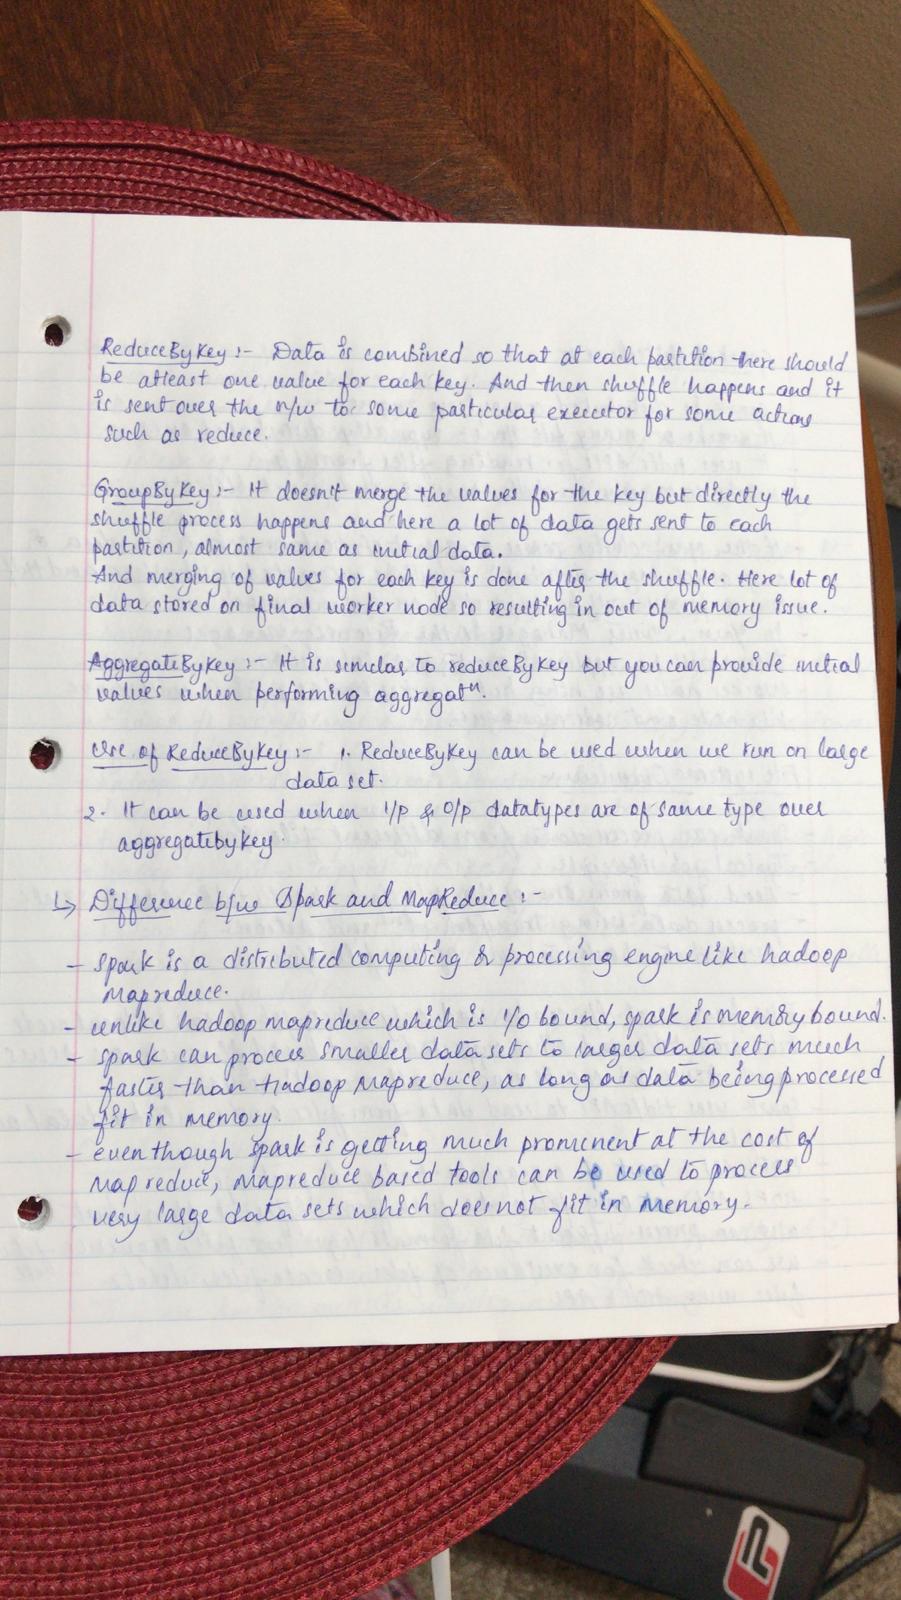 ReduceByKey :- Data is combined so that at each partition there should
be atleast one value for each key. And then shuffle happens and it
is sent over the n/w to some particular executor for some actions
such as reduce.
GroupByKey :- It doesn't merge the values for the key but directly the
shuffle process happens and here a lot of data gets sent to each
partition, almost same as initial data.
And merging of values for each key is done after the shuffle. Here lot of
data stored on final worker node so resulting in out of memory issue.
AggregateByKey :- It is similar to reduceByKey but you can provide initial
values when performing aggregatⁿ.
Use of ReduceByKey :- 1. ReduceByKey can be used when we run on large
data set.
2. It can be used when i/p & o/p datatypes are of same type over
aggregatebykey.
↳ Difference b/w Spark and MapReduce :-
- spark is a distributed computing & processing engine like hadoop
mapreduce.
- unlike hadoop mapreduce which is I/o bound, spark is memory bound.
- spark can process smaller data sets to larger data sets much
faster than Hadoop Mapreduce, as long as data being processed
fit in memory.
- eventhough spark is getting much prominent at the cost of
map reduce, mapreduce based tools can be used to process
very large data sets which does not fit in memory.